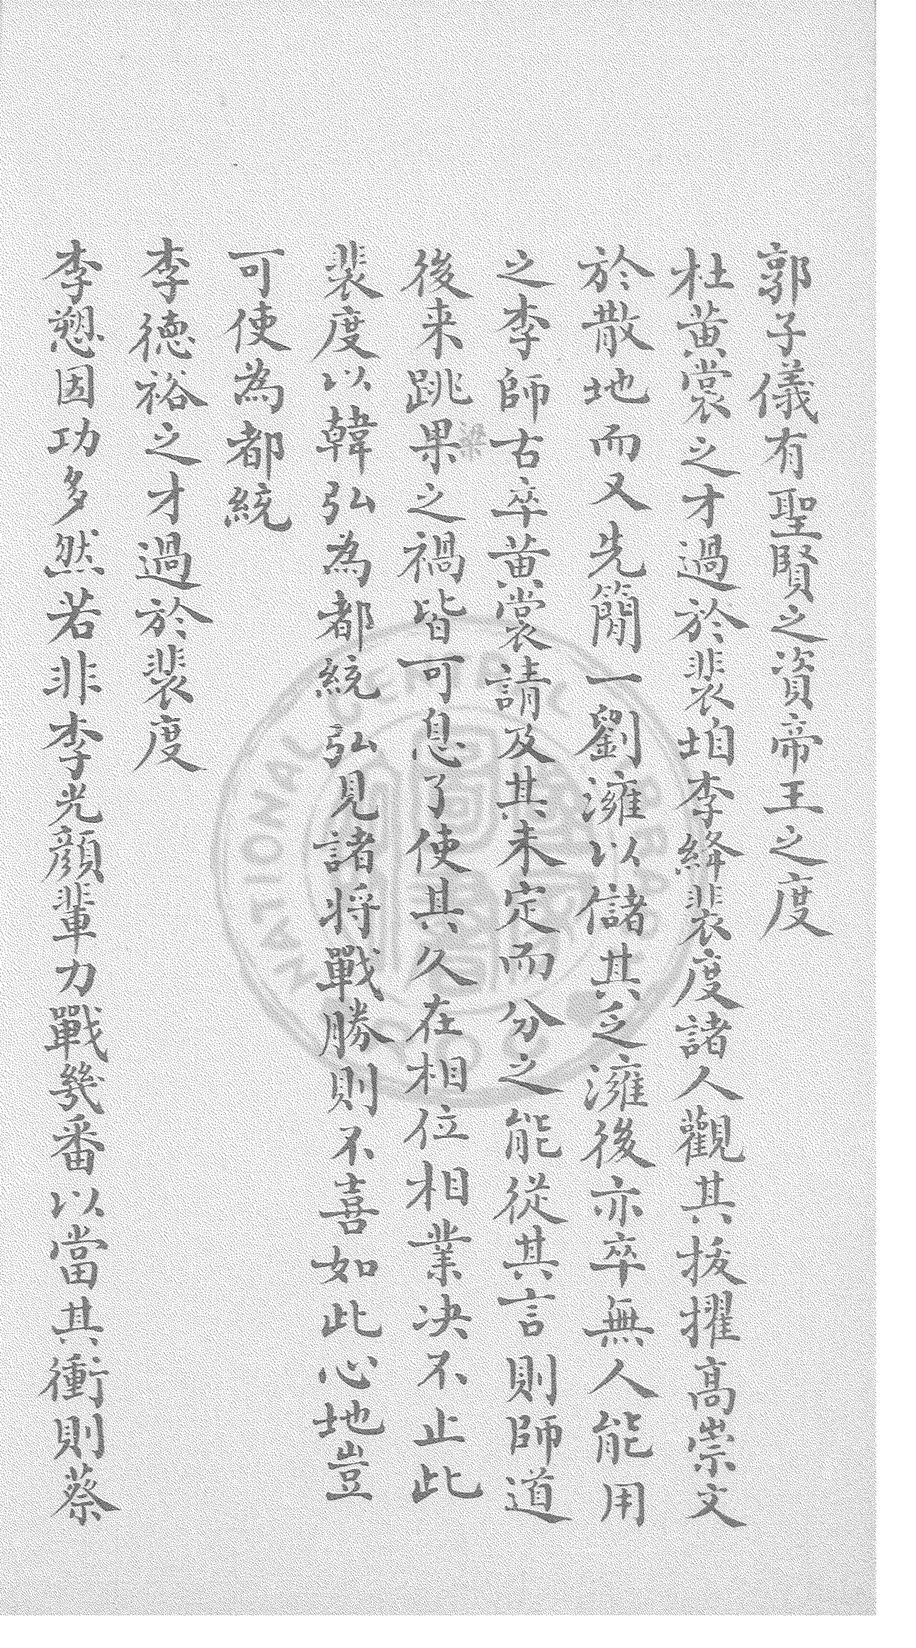 郭子儀有聖賢之資帝王之度
杜黃裳之才過於裴垍李絳裴度諸人觀其拔擢高崇文
於散地而又先簡一劉澭以儲其乏澭後亦卒無人能用
之李師古卒黃裳請及其未定而分之能從其言則師道
後来跳果之禍皆可息了使其久在相位相業决不止此
梁
裴度以韓弘為都統弘見諸将戰勝則不喜如此心地豈
可使為都統
李德裕之才過於裴度
李愬因功多然若非李光顏輩力戰幾番以當其衝則蔡
NATIONAL CENTRAL LIBRARY